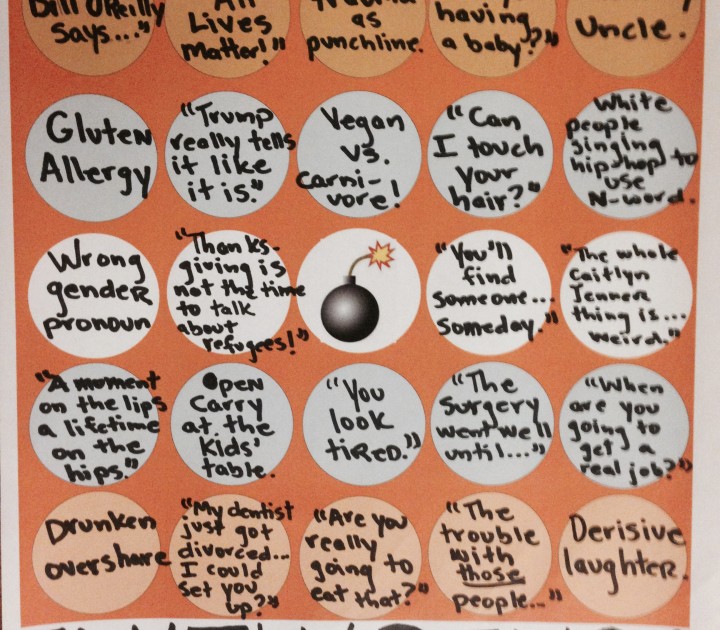 Bill O'Reilly
says..."
All
Lives
Matter!"
as
punchline.
having
a baby?"
Uncle.
Gluten
Allergy
"Trump
really tells
it like
it is."
Vegan
vs.
Carni-
vore!
"Can
I touch
your
hair?"
White
people
singing
hip hop to
use
N-word.
Wrong
gender
pronoun
"Thanks-
giving is
not the time
to talk
about
refugees!"
"You'll
find
someone...
Someday."
"The whole
Caitlyn
Jenner
thing is...
weird."
"A moment
on the lips
a lifetime
on the
hips."
Open
Carry
at the
Kids'
table.
"You
look
tired."
"The
Surgery
went well
until...."
"When
are you
going to
get a
real job?"
Drunken
overshare
"My dentist
just got
divorced...
I could
Set you
up?"
"Are you
really
going to
eat that?"
"The
trouble
with
those
people..."
Derisive
laughter.